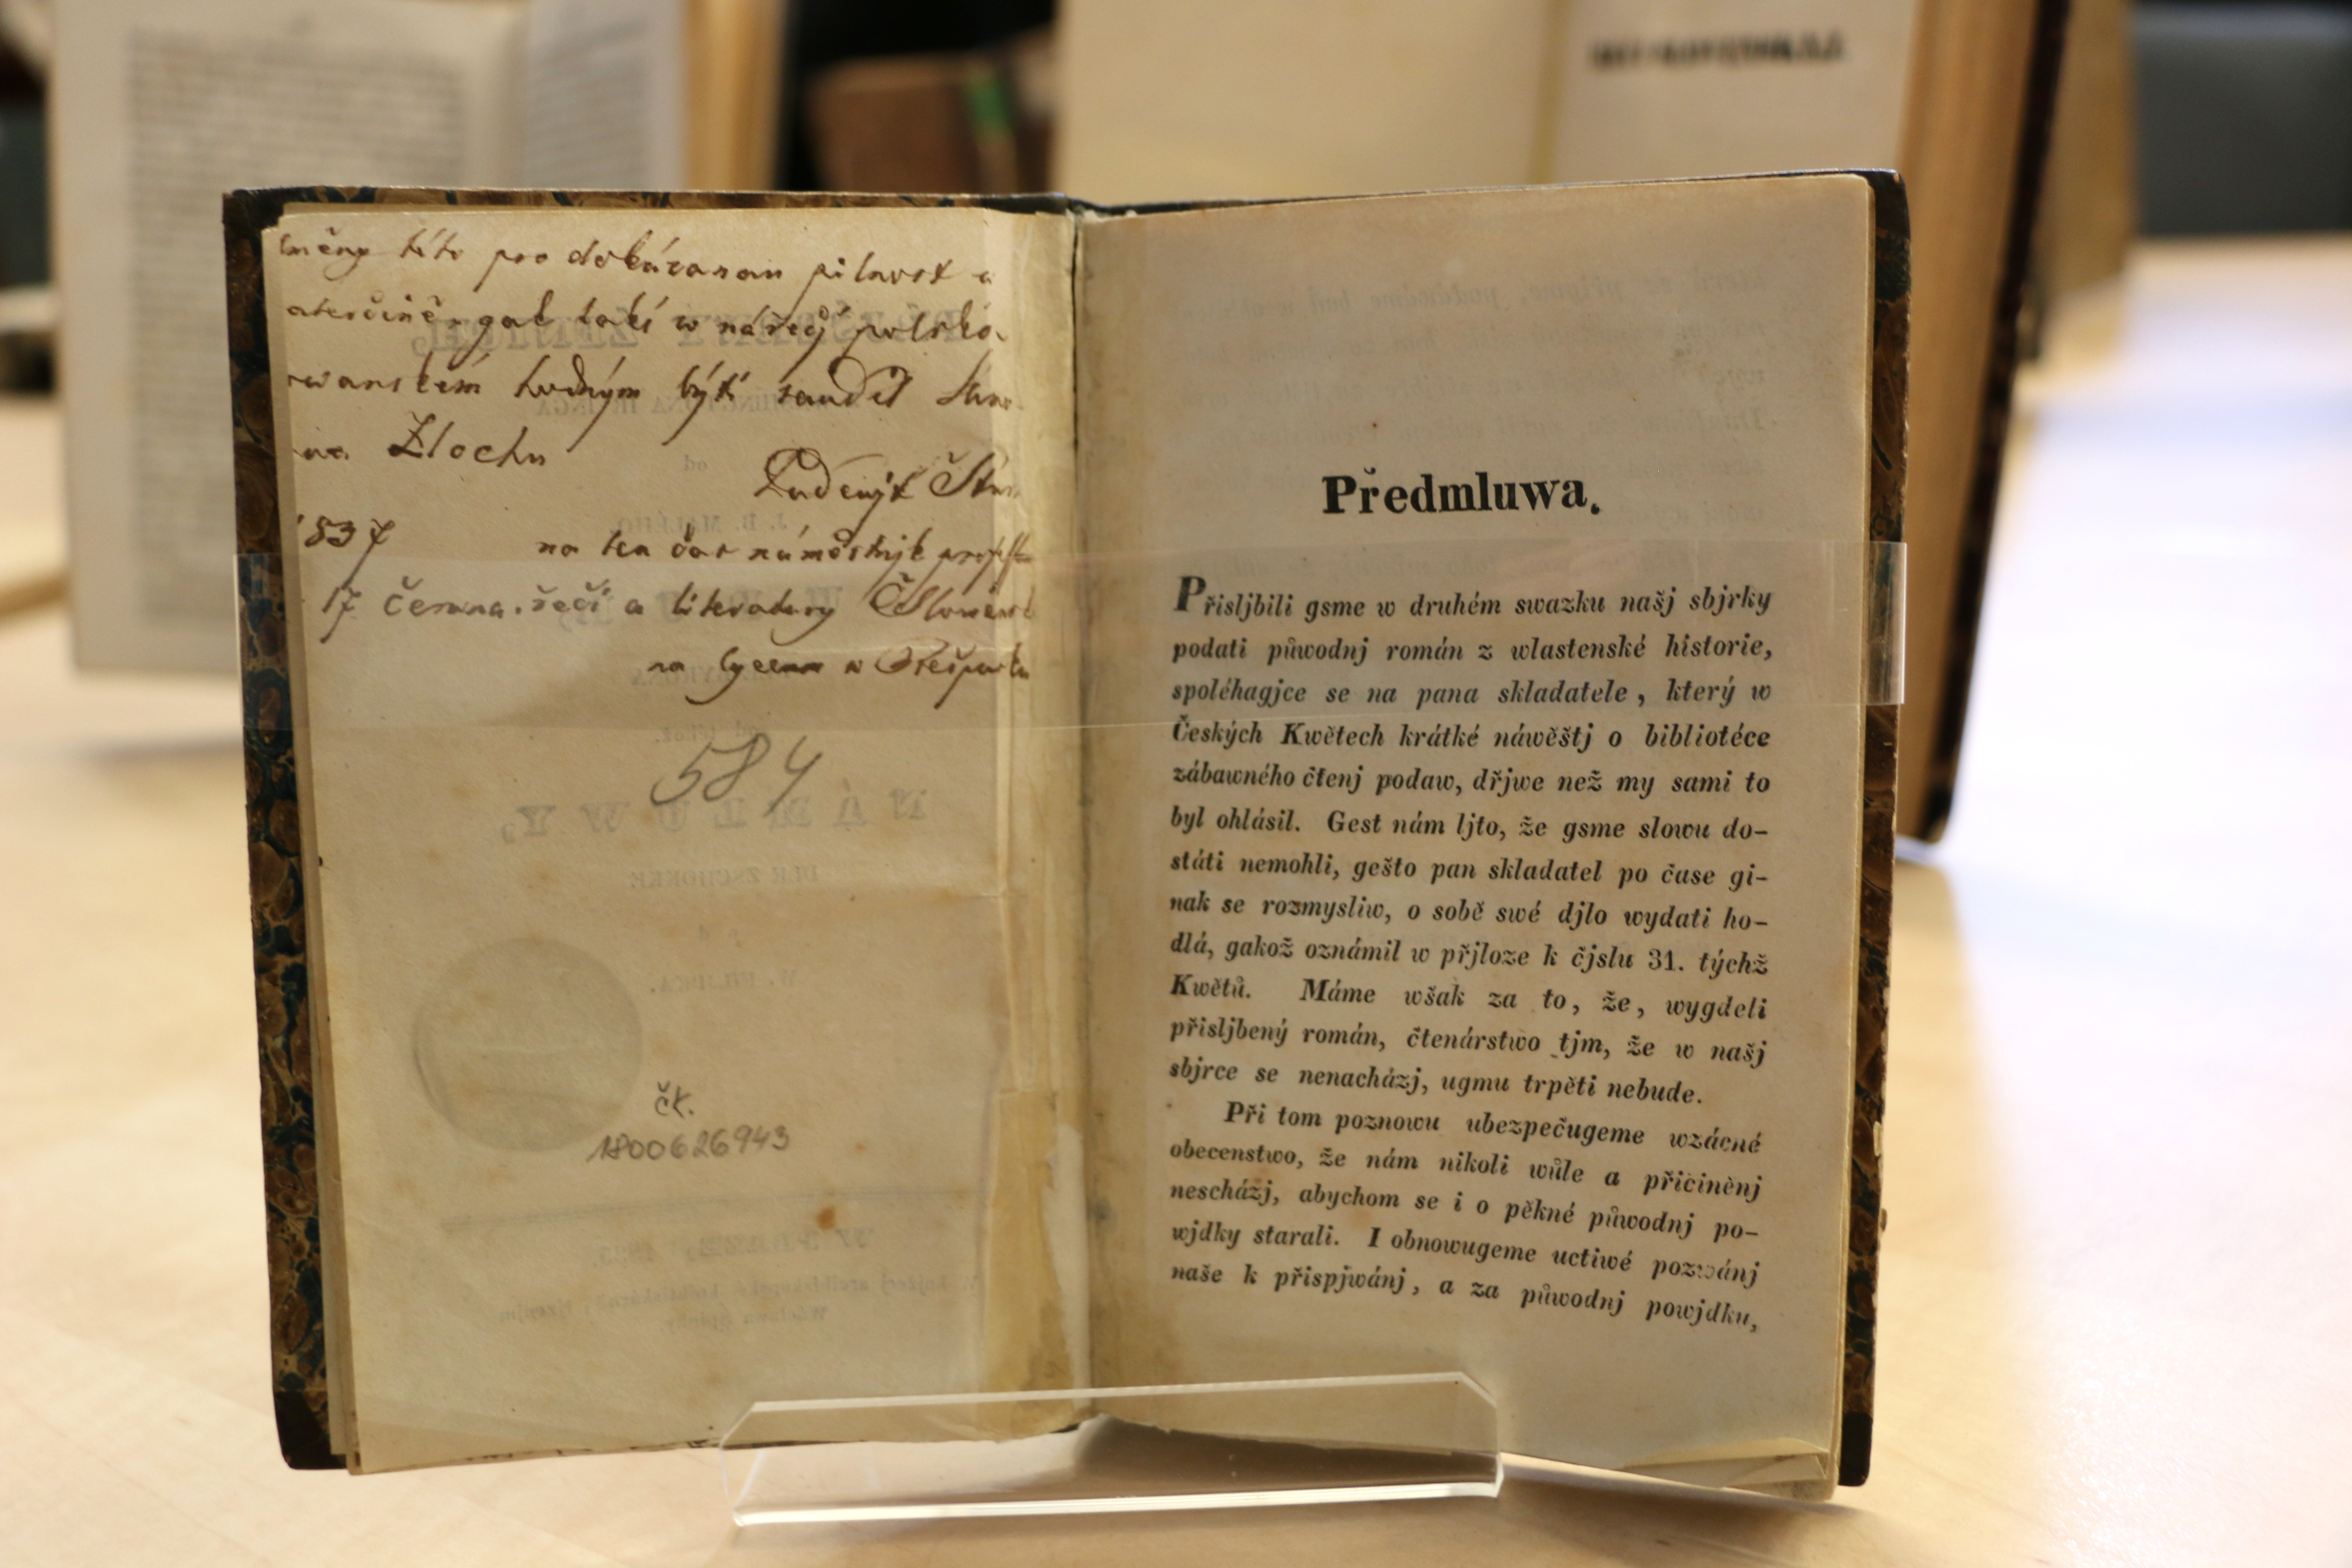 této pro dokázanau pilnost a
gak také w nářečj polsko
hodným býti saudil
Žlochu
Ludewjt Štur
1837 na ten čas náměstnjk
17 Června. řeči a literatury
na lyceum w Prešpurku
584
čk.
1800626943
Předmluwa.
Přisljbili gsme w druhém swazku našj sbjrky
podati půwodnj román z wlastenské historie,
spoléhagjce se na pana skladatele, který w
Českých Kwětech krátké náwěštj o bibliotéce
zábawného čtenj podaw, dřjwe než my sami to
byl ohlásil. Gest nám ljto, že gsme slowu do-
státi nemohli, gešto pan skladatel po čase gi-
nak se rozmysliw, o sobě swé djlo wydati ho-
dlá, gakož oznámil w přjloze k čjslu 31. týchž
Kwětů. Máme wšak za to, že, wygdeli
přisljbený román, čtenárstwo tjm, že w našj
sbjrce se nenacházj, ugmu trpěti nebude.
Při tom poznowu ubezpečugeme wzácné
obecenstwo, že nám nikoli wůle a přičiněnj
nescházj, abychom se i o pěkné půwodnj po-
wjdky starali. I obnowugeme uctiwé pozwánj
naše k přispjwánj, a za půwodnj powjdku,